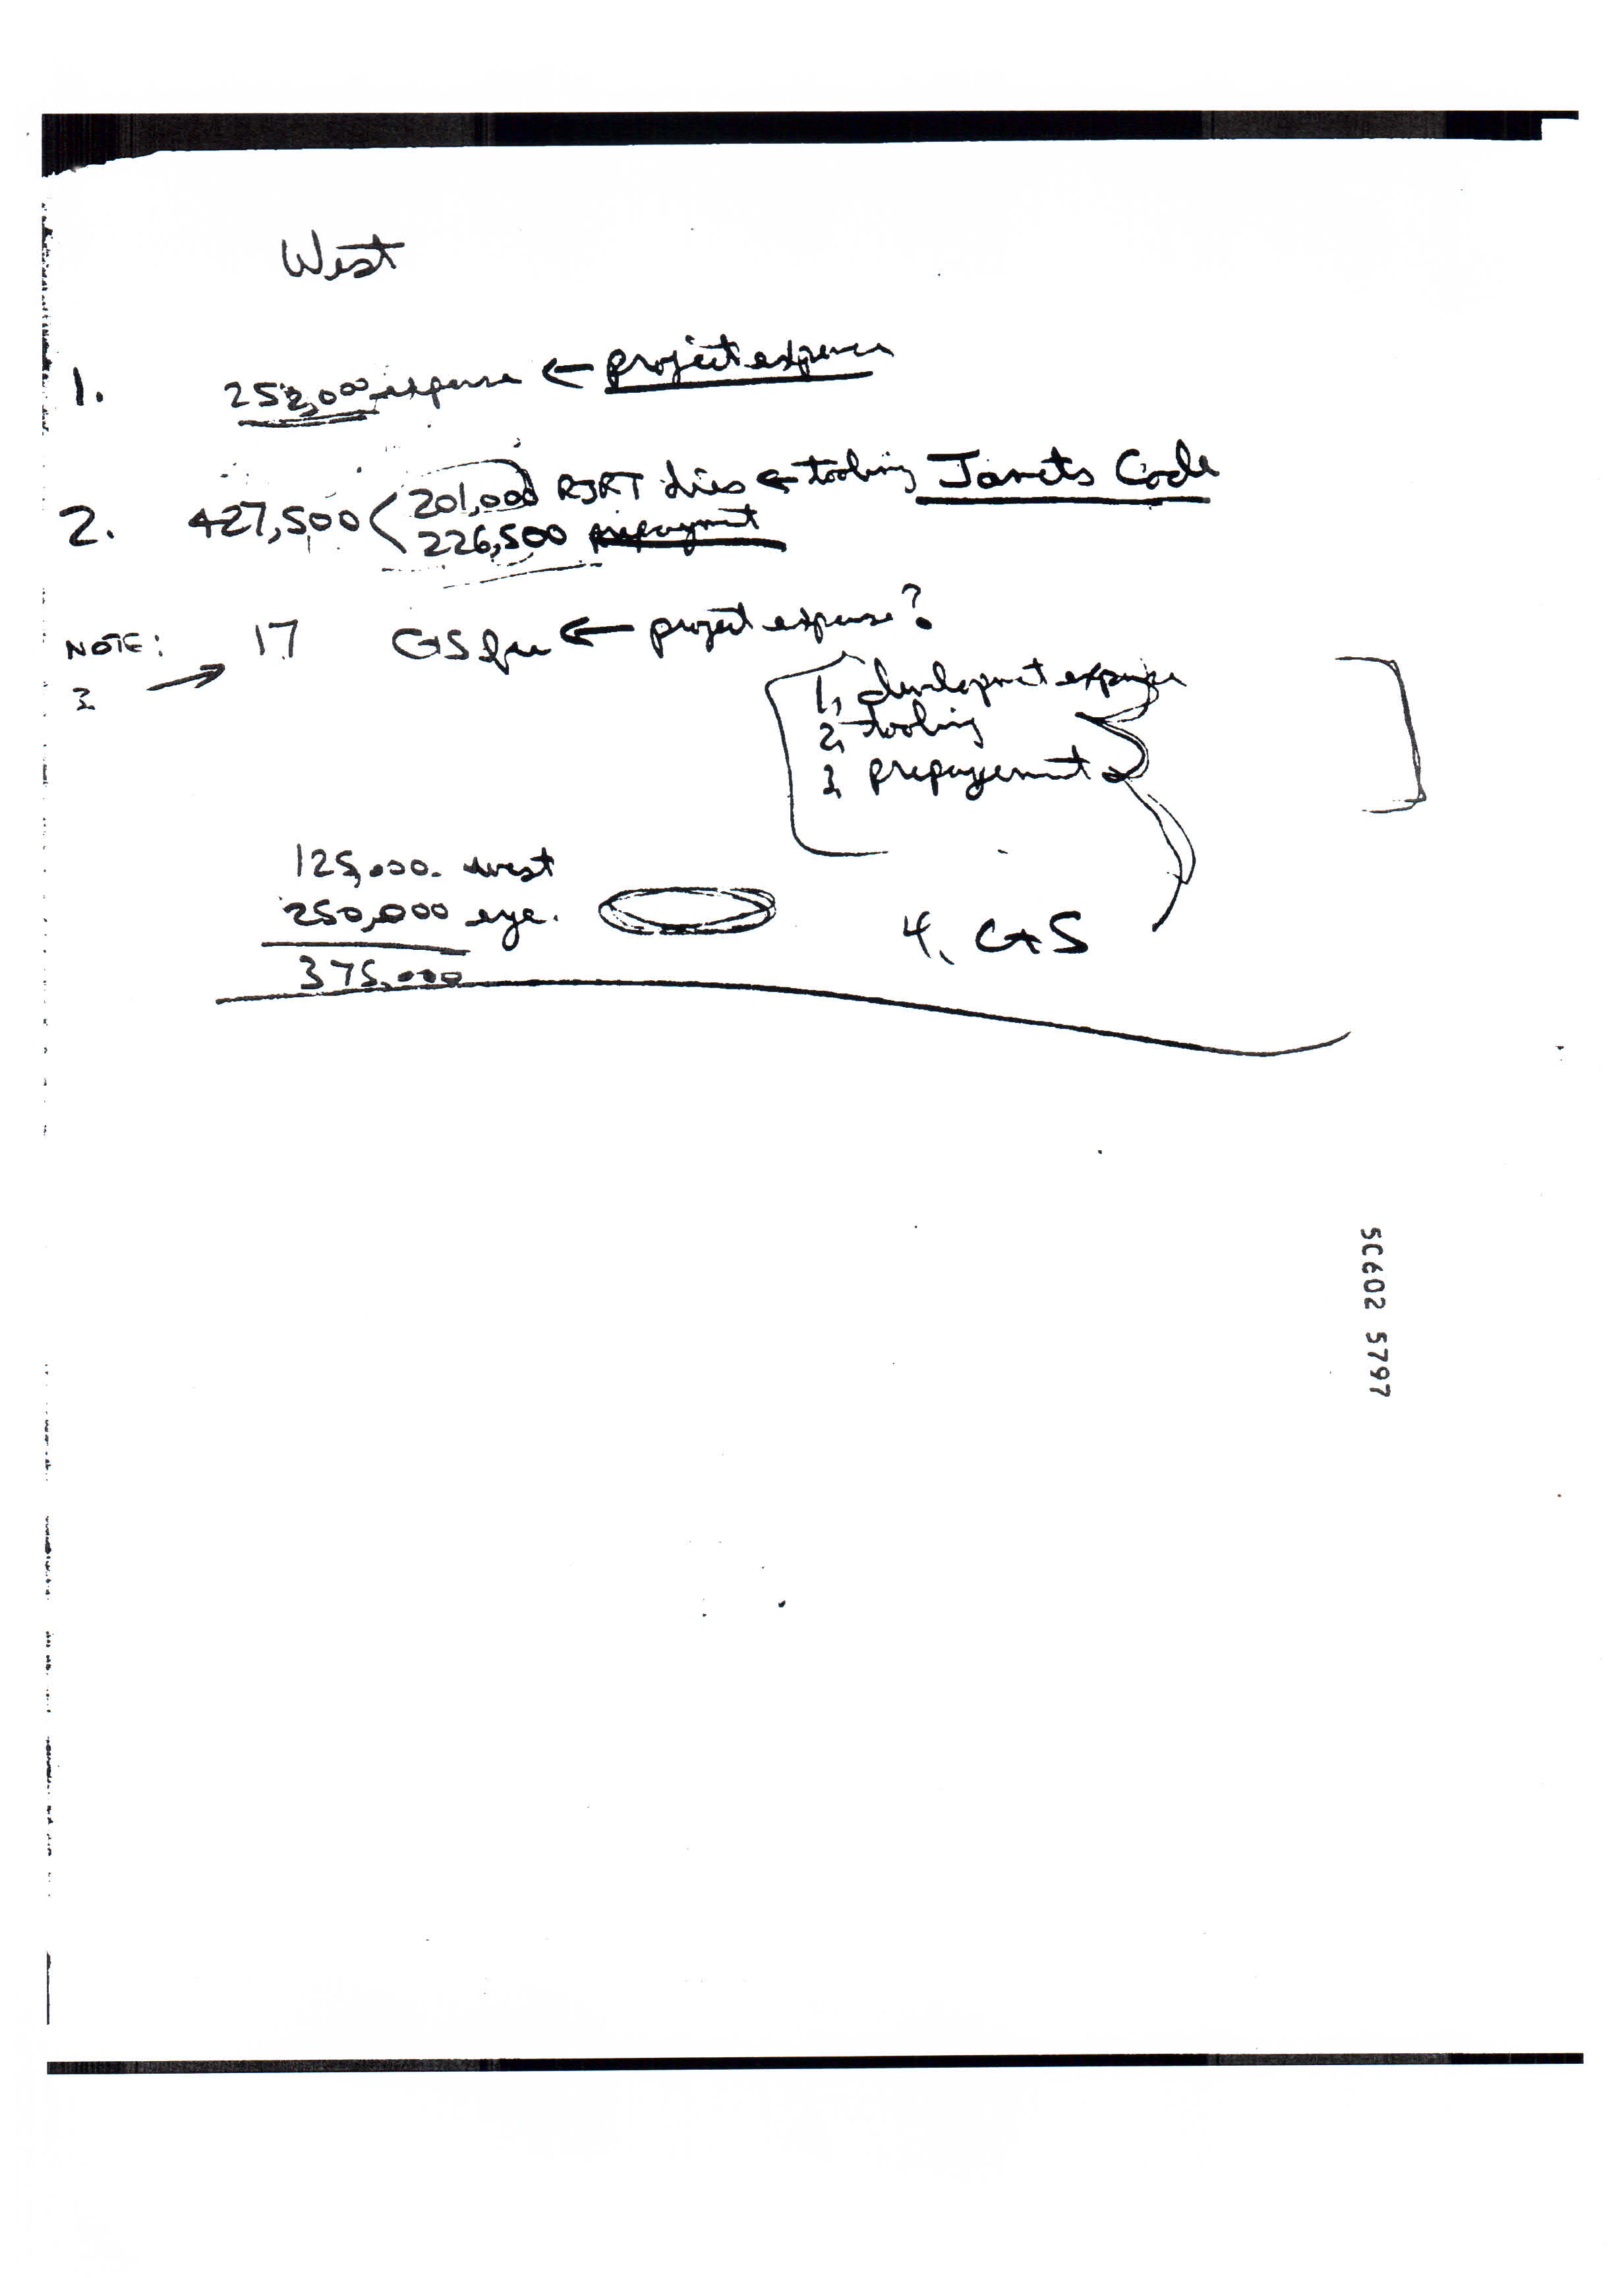 West
1. 252,000 expense ← project expense
2. 427,500 ( 201,000 RJRT dies ← tooling Janets Code
226,500 prepayment
NOTE: 17 G+S fee ← project expense?
3 →
1, development expense
2, tooling
3, prepayment
125,000. west
250,000 eye.
375,000
4, G+S
SC602 5797